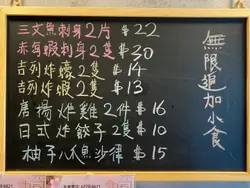 三文魚刺身2片 $22
赤海蝦刺身2隻 $20
吉列炸蠔2隻 $14
吉列炸蝦2隻 $13
唐揚炸雞2件 $16
日式炸餃子2隻 $10
柚子八爪魚沙律 $15
無限追加小食